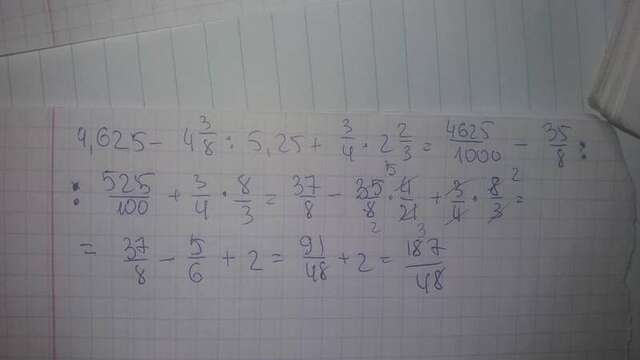 4,625 - 4 3/8 : 5,25 + 3/4 · 2 2/3 = 4625/1000 - 35/8 :
: 525/100 + 3/4 · 8/3 = 37/8 - 35/8 · 4/21 + 3/4 · 8/3 =
= 37/8 - 5/6 + 2 = 91/48 + 2 = 187/48